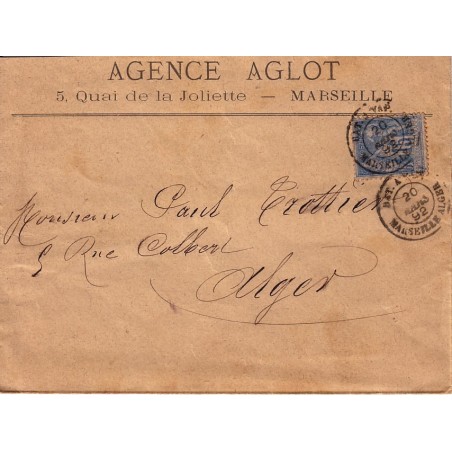 AGENCE AGLOT
5, Quai de la Joliette — MARSEILLE
Monsieur Paul Trottier
5 Rue Colbert
Alger
20
MARS
92
MARSEILLE
BAT. A
20
MARS
92
MARSEILLE ALGER